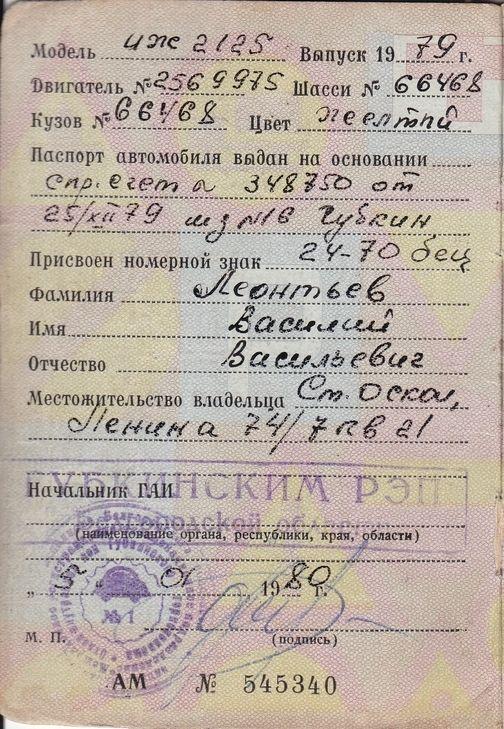 Модель иж 2125 Выпуск 1979 г.
Двигатель № 2569975 Шасси № 66468
Кузов № 66468 Цвет желтый
Паспорт автомобиля выдан на основании
спр. счет 348750 от
25/XII 79 маг N16 Губкин
Присвоен номерной знак 24-70 бец
Фамилия Леонтьев
Имя Василий
Отчество Васильевич
Местожительство владельца Ст. Оскол,
Ленина 74/7 кв 21
ГУБКИНСКИМ РЭП
Начальник ГАИ
Белгородской области
(наименование органа, республики, края, области)
„ 5 “ 01 1980 г.
№ 1
М. П. (подпись)
АМ № 545340